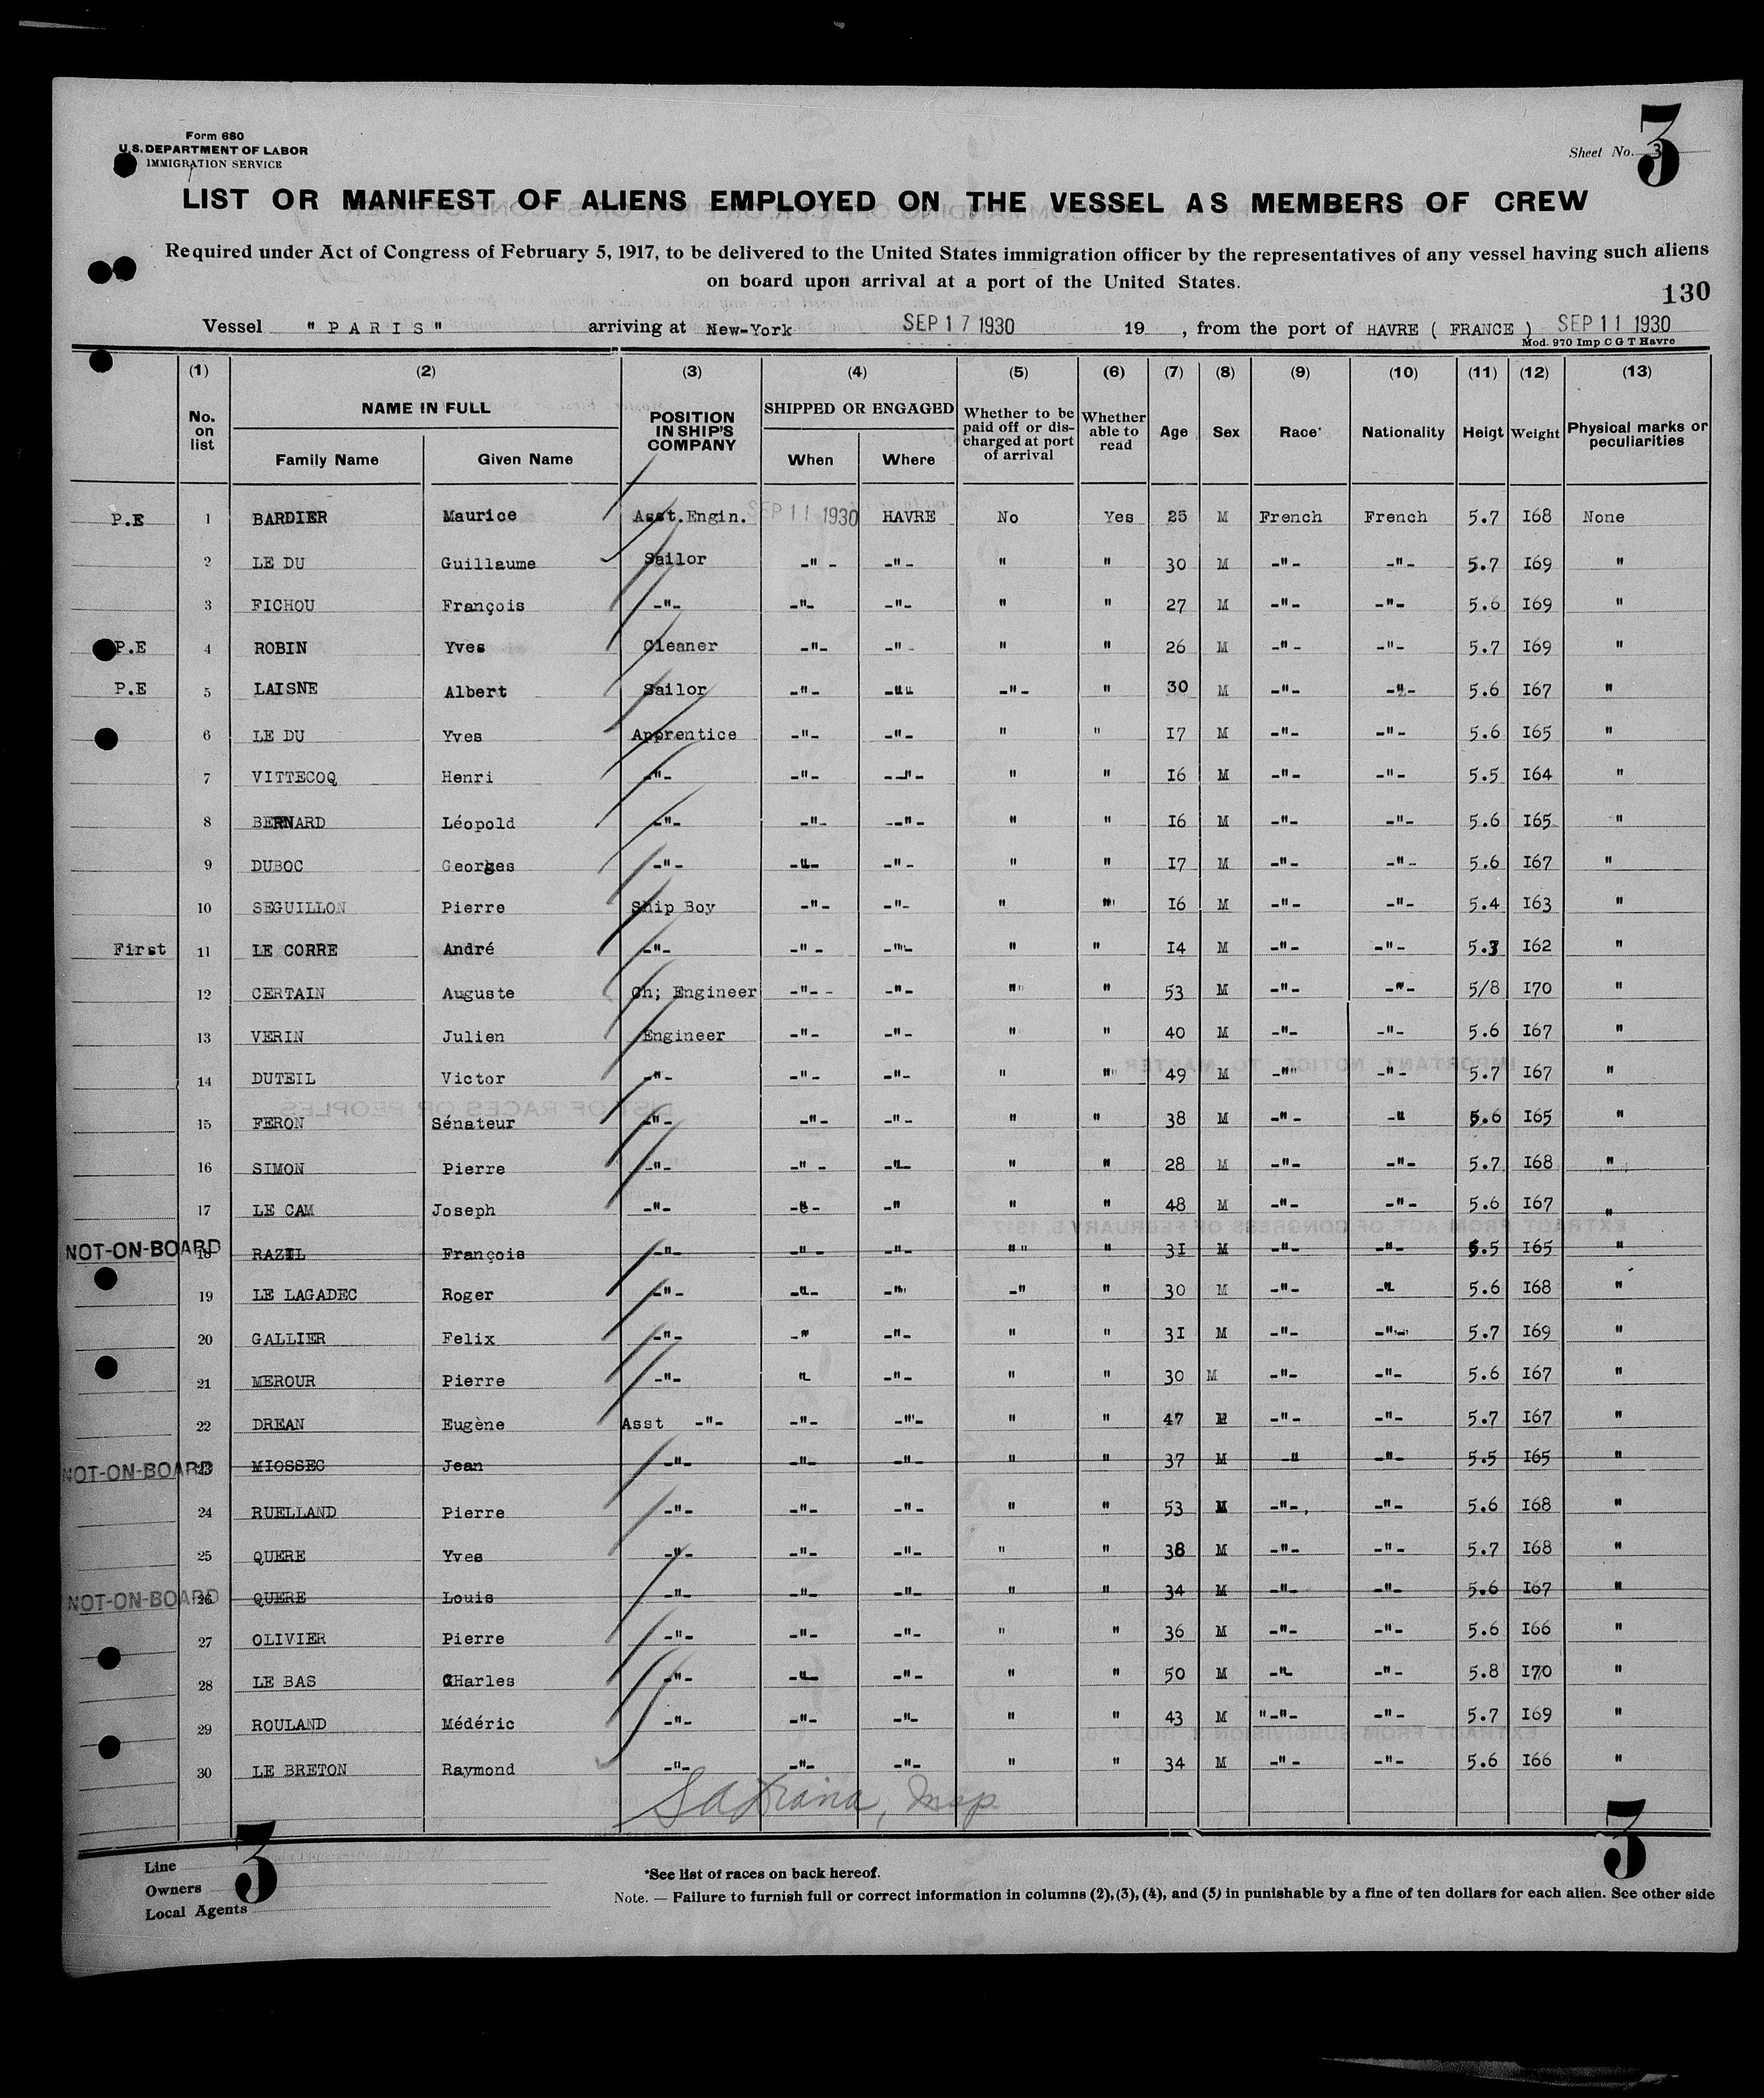 Form 680
U.S. DEPARTMENT OF LABOR
IMMIGRATION SERVICE
Sheet No. 3
3
LIST OR MANIFEST OF ALIENS EMPLOYED ON THE VESSEL AS MEMBERS OF CREW
Required under Act of Congress of February 5, 1917, to be delivered to the United States immigration officer by the representatives of any vessel having such aliens
on board upon arrival at a port of the United States.
130
Vessel "PARIS" arriving at New-York SEP 17 1930 19 , from the port of HAVRE ( FRANCE ) SEP 11 1930
Mod. 970 Imp C G T Havre
(1) (2) (3) (4) (5) (6) (7) (8) (9) (10) (11) (12) (13)
No. on list NAME IN FULL Family Name Given Name POSITION IN SHIP'S COMPANY SHIPPED OR ENGAGED When Where Whether to be paid off or discharged at port of arrival Whether able to read Age Sex Race* Nationality Heigt Weight Physical marks or peculiarities
P.E 1 BARDIER Maurice Asst.Engin. SEP 11 1930 HAVRE No Yes 25 M French French 5.7 I68 None
2 LE DU Guillaume Sailor -"- -"- " " 30 M -"- -"- 5.7 I69 "
3 FICHOU François -"- -"- -"- " " 27 M -"- -"- 5.6 I69 "
P.E 4 ROBIN Yves Cleaner -"- -"- " " 26 M -"- -"- 5.7 I69 "
P.E 5 LAISNE Albert Sailor -"- -"- -"- " 30 M -"- -"- 5.6 I67 "
6 LE DU Yves Apprentice -"- -"- " " I7 M -"- -"- 5.6 I65 "
7 VITTECOQ Henri -"- -"- -"- " " I6 M -"- -"- 5.5 I64 "
8 BERNARD Léopold -"- -"- --"- " " I6 M -"- -"- 5.6 I65 "
9 DUBOC Georges -"- -"- -"- " " I7 M -"- -"- 5.6 I67 "
10 SEGUILLON Pierre Ship Boy -"- -"- " " I6 M -"- -"- 5.4 I63 "
First 11 LE CORRE André -"- -"- -"- " " I4 M -"- -"- 5.3 I62 "
12 CERTAIN Auguste Ch; Engineer -"-- -"- " " 53 M -"- -"- 5/8 I70 "
13 VERIN Julien Engineer -"- -"- " " 40 M -"- -"- 5.6 I67 "
14 DUTEIL Victor -"- -"- -"- " " 49 M -"" -"- 5.7 I67 "
15 FERON Sénateur -"- -"- -"- " " 38 M -"- -" 5.6 I65 "
16 SIMON Pierre -"- -"- -"- " " 28 M -"- -"- 5.7 I68 "
17 LE CAM Joseph -"- -"- -" " " 48 M -"- -"- 5.6 I67 "
NOT-ON-BOARD 18 RAZIL François -"- -"- -"- "" " 3I M -"- -"- 5.5 I65 "
19 LE LAGADEC Roger -"- -"- -"- -" " 30 M -"- -" 5.6 I68 "
20 GALLIER Felix -"- -" -"- " " 3I M -"- -"- 5.7 I69 "
21 MEROUR Pierre -"- " -"- " " 30 M -"- -"- 5.6 I67 "
22 DREAN Eugène Asst -"- -"- -"- " " 47 M -"- -"- 5.7 I67 "
NOT-ON-BOARD 23 MIOSSEC Jean -"- -"- -"- " " 37 M -" -"- 5.5 I65 "
24 RUELLAND Pierre -"- -"- -"- " " 53 M -"- -"- 5.6 I68 "
25 QUERE Yves -"- -"- -"- " " 38 M -"- -"- 5.7 I68 "
NOT-ON-BOARD 26 QUERE Louis -"- -"- -"- " " 34 M -"- -"- 5.6 I67 "
27 OLIVIER Pierre -"- -"- -"- " " 36 M -"- -"- 5.6 I66 "
28 LE BAS CHarles -"- -"- -"- " " 50 M -" -"- 5.8 I70 "
29 ROULAND Médéric -"- -"- -"- " " 43 M "-"- -"- 5.7 I69 "
30 LE BRETON Raymond -"- -"- -"- " " 34 M -"- -"- 5.6 I66 "
Insp.
3
3
Line
Owners
Local Agents
*See list of races on back hereof.
Note. — Failure to furnish full or correct information in columns (2), (3), (4), and (5) in punishable by a fine of ten dollars for each alien. See other side